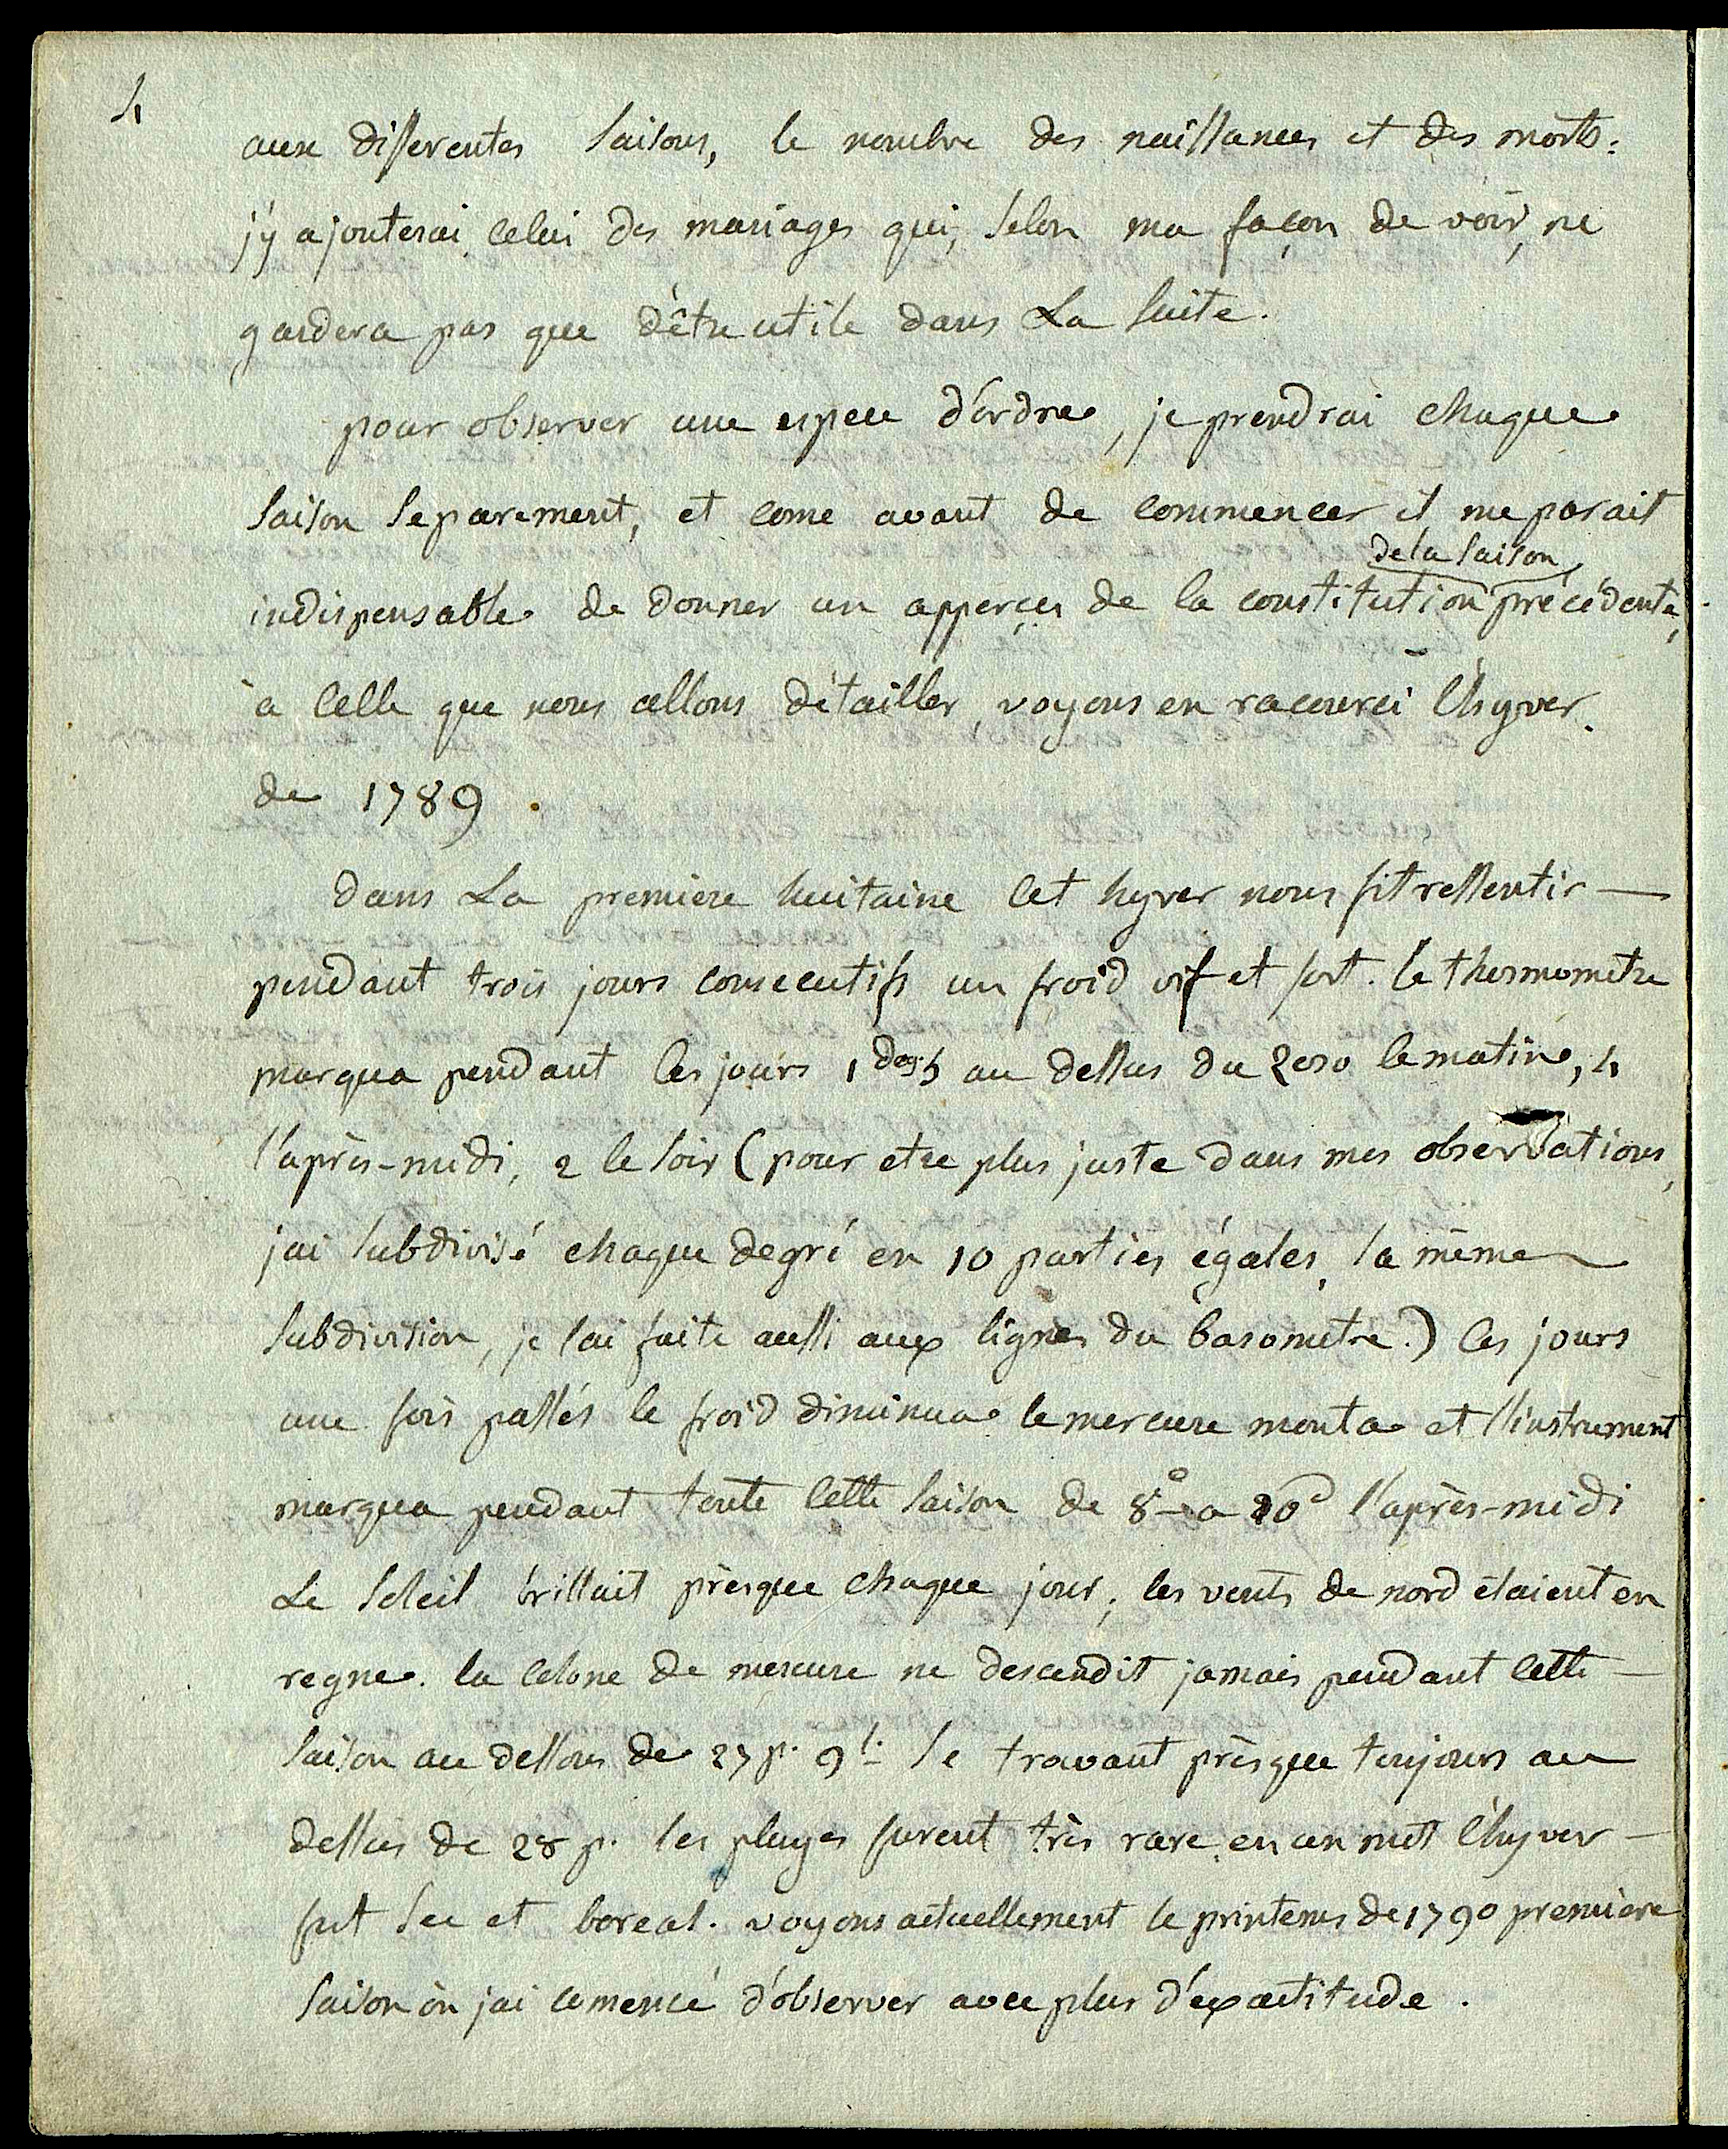 4
aux differentes saisons, le nombre des naissances et des morts:
j'y ajouterai celui des mariages qui, selon ma façon de voir, ne
gardera pas que d'être utile dans La suite.
pour observer une espece d'ordre, je prendrai chaque
saison separement, et come avant de commencer il me parait
de la saison
indispensable de donner un apperçu de la constitution précédente,
à celle que nous allons détailler, voyons en racourci l'hyver
de 1789.
dans La premiere huitaine cet hyver nous fit ressentir —
pendant trois jours consecutifs un froid vif et fort. le thermometre
marqua pendant ces jours 1 deg. 5 au dessus du zero le matin, 4
l'après-midi, 2 le soir (pour etre plus juste dans mes observations,
jai subdivisé chaque degré en 10 parties égales, la même
subdivision, je l'ai faite aussi aux lignes du barometre.) ces jours
une fois passés le froid diminua le mercure monta et l'instrument
marqua pendant toute cette saison de 8° a 10° l'après-midi
Le soleil brillait prèsque chaque jour, les vents de nord étaient en
regne. la colone de mercure ne descendit jamais pendant cette —
saison au dessous de 27 p. 9 l. se trovant prèsque toujours au
dessus de 28 p. les pluyes furent très rare, en un mot l'hyver —
fut sec et boreal. voyons actuellement le printems de 1790 première
saison òu j'ai comencé d'observer avec plus d'exactitude.